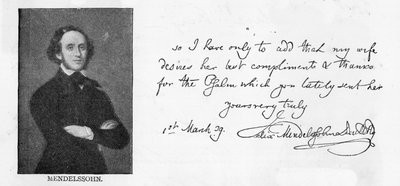 so I have only to add that my wife
desires her best compliments & thanks
for the Psalm which you lately sent her
yours very truly
1st March 39.
Felix Mendelssohn Bartholdy
MENDELSSOHN.